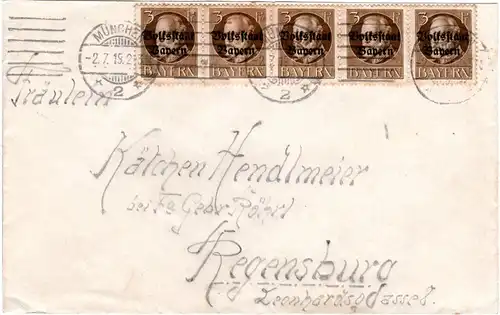 3 Pf 3 Pf 3 Pf 3 Pf 3 Pf
Volksstaat Bayern Volksstaat Bayern Volksstaat Bayern Volksstaat Bayern Volksstaat Bayern
BAYERN BAYERN BAYERN BAYERN BAYERN
MÜNCHEN
2
2
Fräulein
Kätchen Hendlmeier
bei Fa Gebr Röhrl
Regensburg